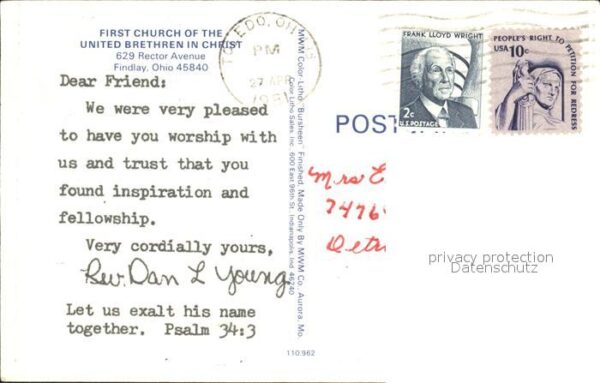 FIRST CHURCH OF THE
UNITED BRETHREN IN CHRIST
629 Rector Avenue
Findlay, Ohio 45840
Dear Friend:
We were very pleased
to have you worship with
us and trust that you
found inspiration and
fellowship.
Very cordially yours,
Rev. Dan L Young
Let us exalt his name
together. Psalm 34:3
MWM Color-Litho "Bursheen" Finished. Made Only By MWM Co., Aurora, Mo.
Color Litho Sales, Inc. 600 East 96th St. Indianapolis, Ind 46240
110,962
TOLEDO, OH
PM
27 APR
FRANK LLOYD WRIGHT
2c
U.S. POSTAGE
PEOPLE'S RIGHT TO PETITION FOR REDRESS
USA 10c
POST
Mrs E
7476
Detr
privacy protection
Datenschutz